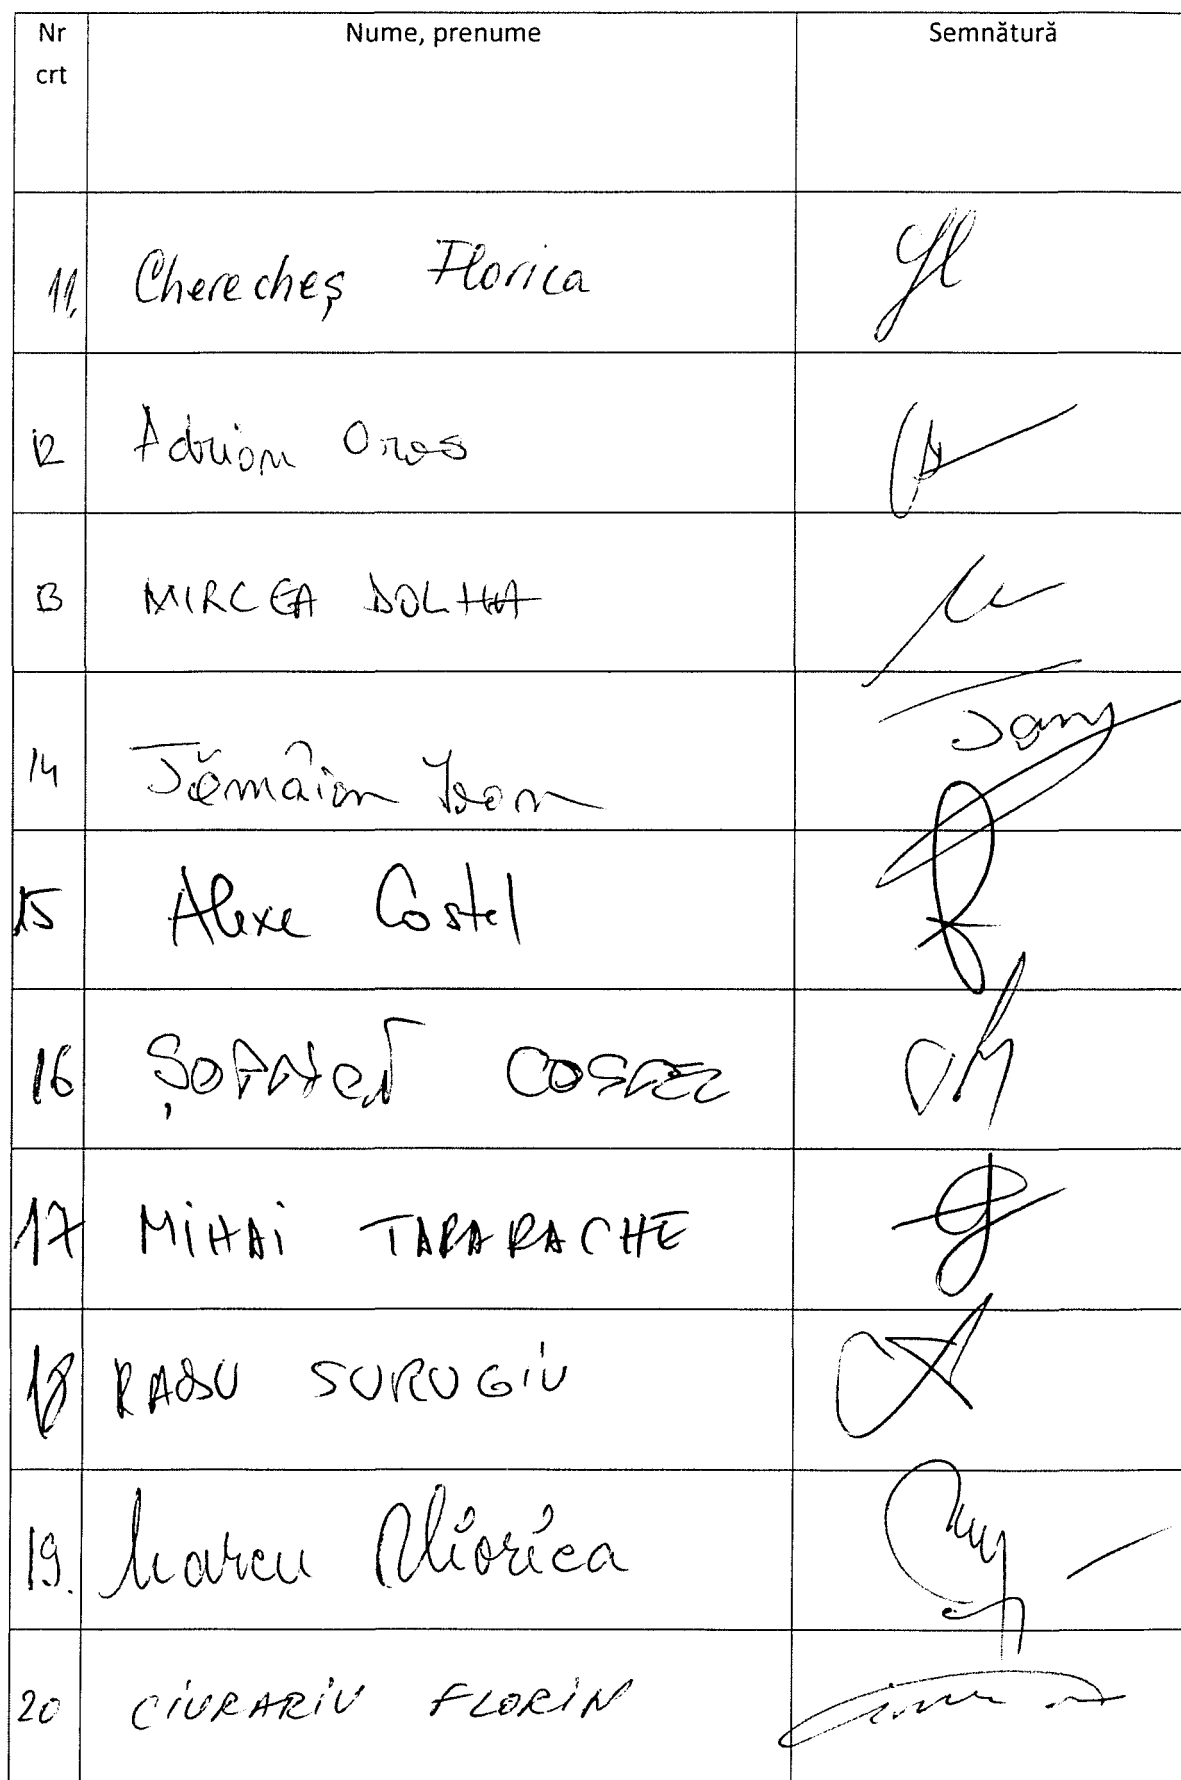 Nr crt Nume, prenume Semnătură
11. Cherecheș Florica
12 Adrian Oros
13 MIRCEA DOLHA
14 Tămâian Ioan
15 Alexe Costel
16 COSTEL
17 MIHAI TAPARACHE
18 RADU SURUGIU
19. Marcu Viorica
20 CIURARIU FLORIN